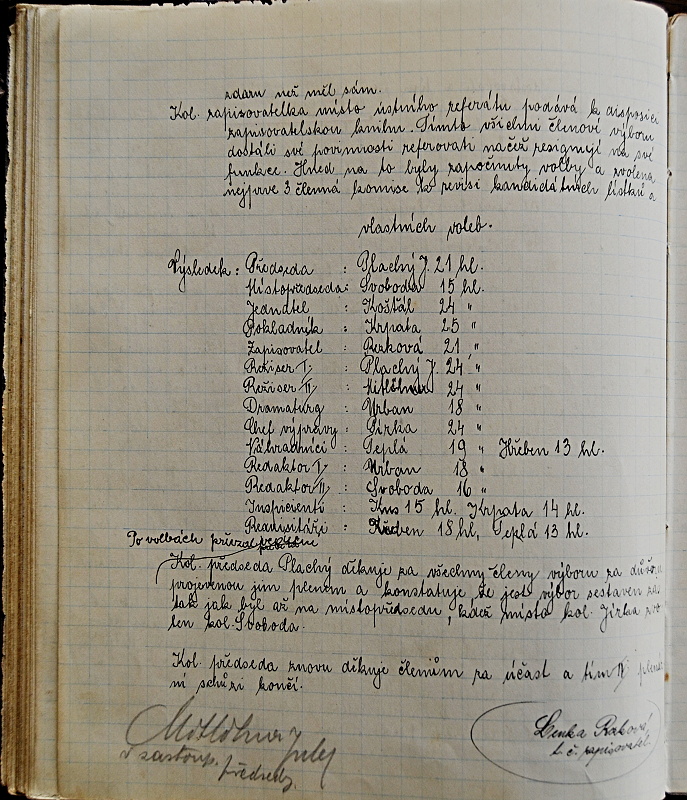 zdaru než měl sám.
Kol. zapisovatelka místo ústního referátu podává k disposici
zapisovatelskou knihu. Tímto všichni členové výboru
dostáli své povinnosti referovati načež resignují na své
funkce. Hned na to byly započmuty volby a zvolena
nejprve 3 členná komise k revisi kandidátních lístků a
vlastních voleb.
Výsledek: Předseda : Plachý J. 21 hl.
Místopředseda: Svoboda 15 hl.
Jednatel : Košťál 24 "
Pokladník : Krpata 25 "
Zapisovatel : Rezková 21 "
Režiser I. : Plachý J. 24 "
Režiser II. : Mitlöhner 24 "
Dramaturg : Urban 18 "
Chef výpravy : Jirka 24 "
Náhradníci : Teplá 19 " Hřeben 13 hl.
Redaktor I. : Urban 18 "
Redaktor II. : Svoboda 16 "
Inspicienti : Kus 15 hl. Krpata 14 hl.
Requisitáři : Hřeben 18 hl, Teplá 13 hl.
Po volbách přivzal
Kol. předseda Plachý děkuje za všechny členy výboru za důvěru
projevenou jim plenem a konstatuje, že jest výbor sestaven
tak jak byl až na místopředsedu, kdež místo kol. Jirka
ten kol. Svoboda.
Kol. předseda znovu děkuje členům za účast a tím
ní schůzi končí.
Mitlöhner
v zastoup. předsedy.
Lenka
t. č. zapisovatel.